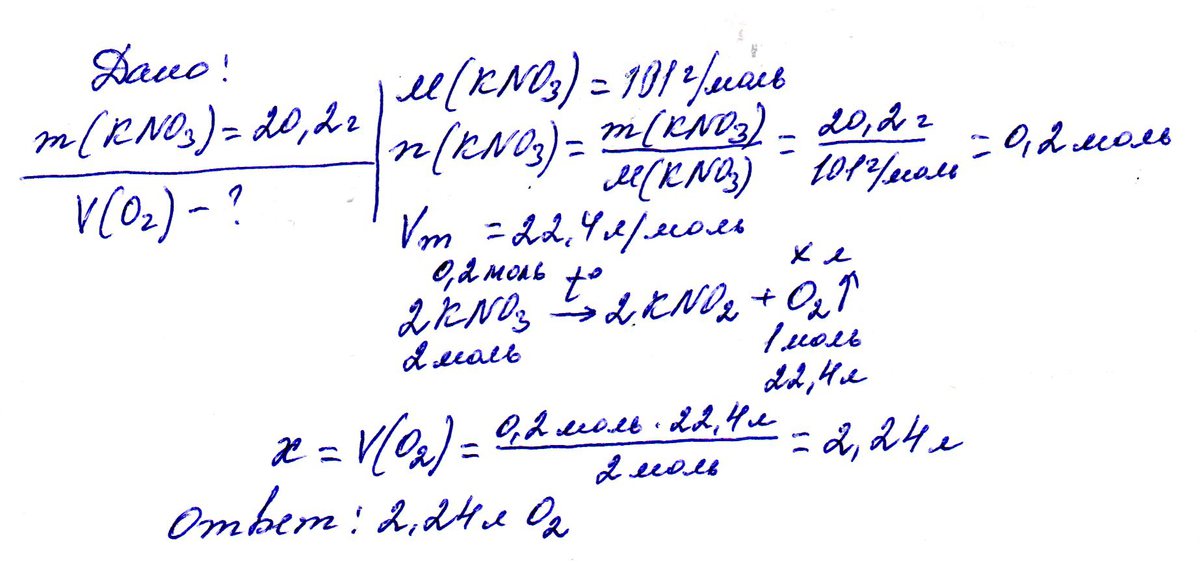 Дано!
m(KNO₃) = 20,2г
V(O₂) – ?
M(KNO₃) = 101г/моль
n(KNO₃) = m(KNO₃) / M(KNO₃) = 20,2г / 101г/моль = 0,2моль
Vm = 22,4л/моль
0,2моль t° x л
2KNO₃ → 2KNO₂ + O₂↑
2моль 1моль
22,4л
x = V(O₂) = 0,2моль · 22,4л / 2моль = 2,24л
Ответ: 2,24л O₂